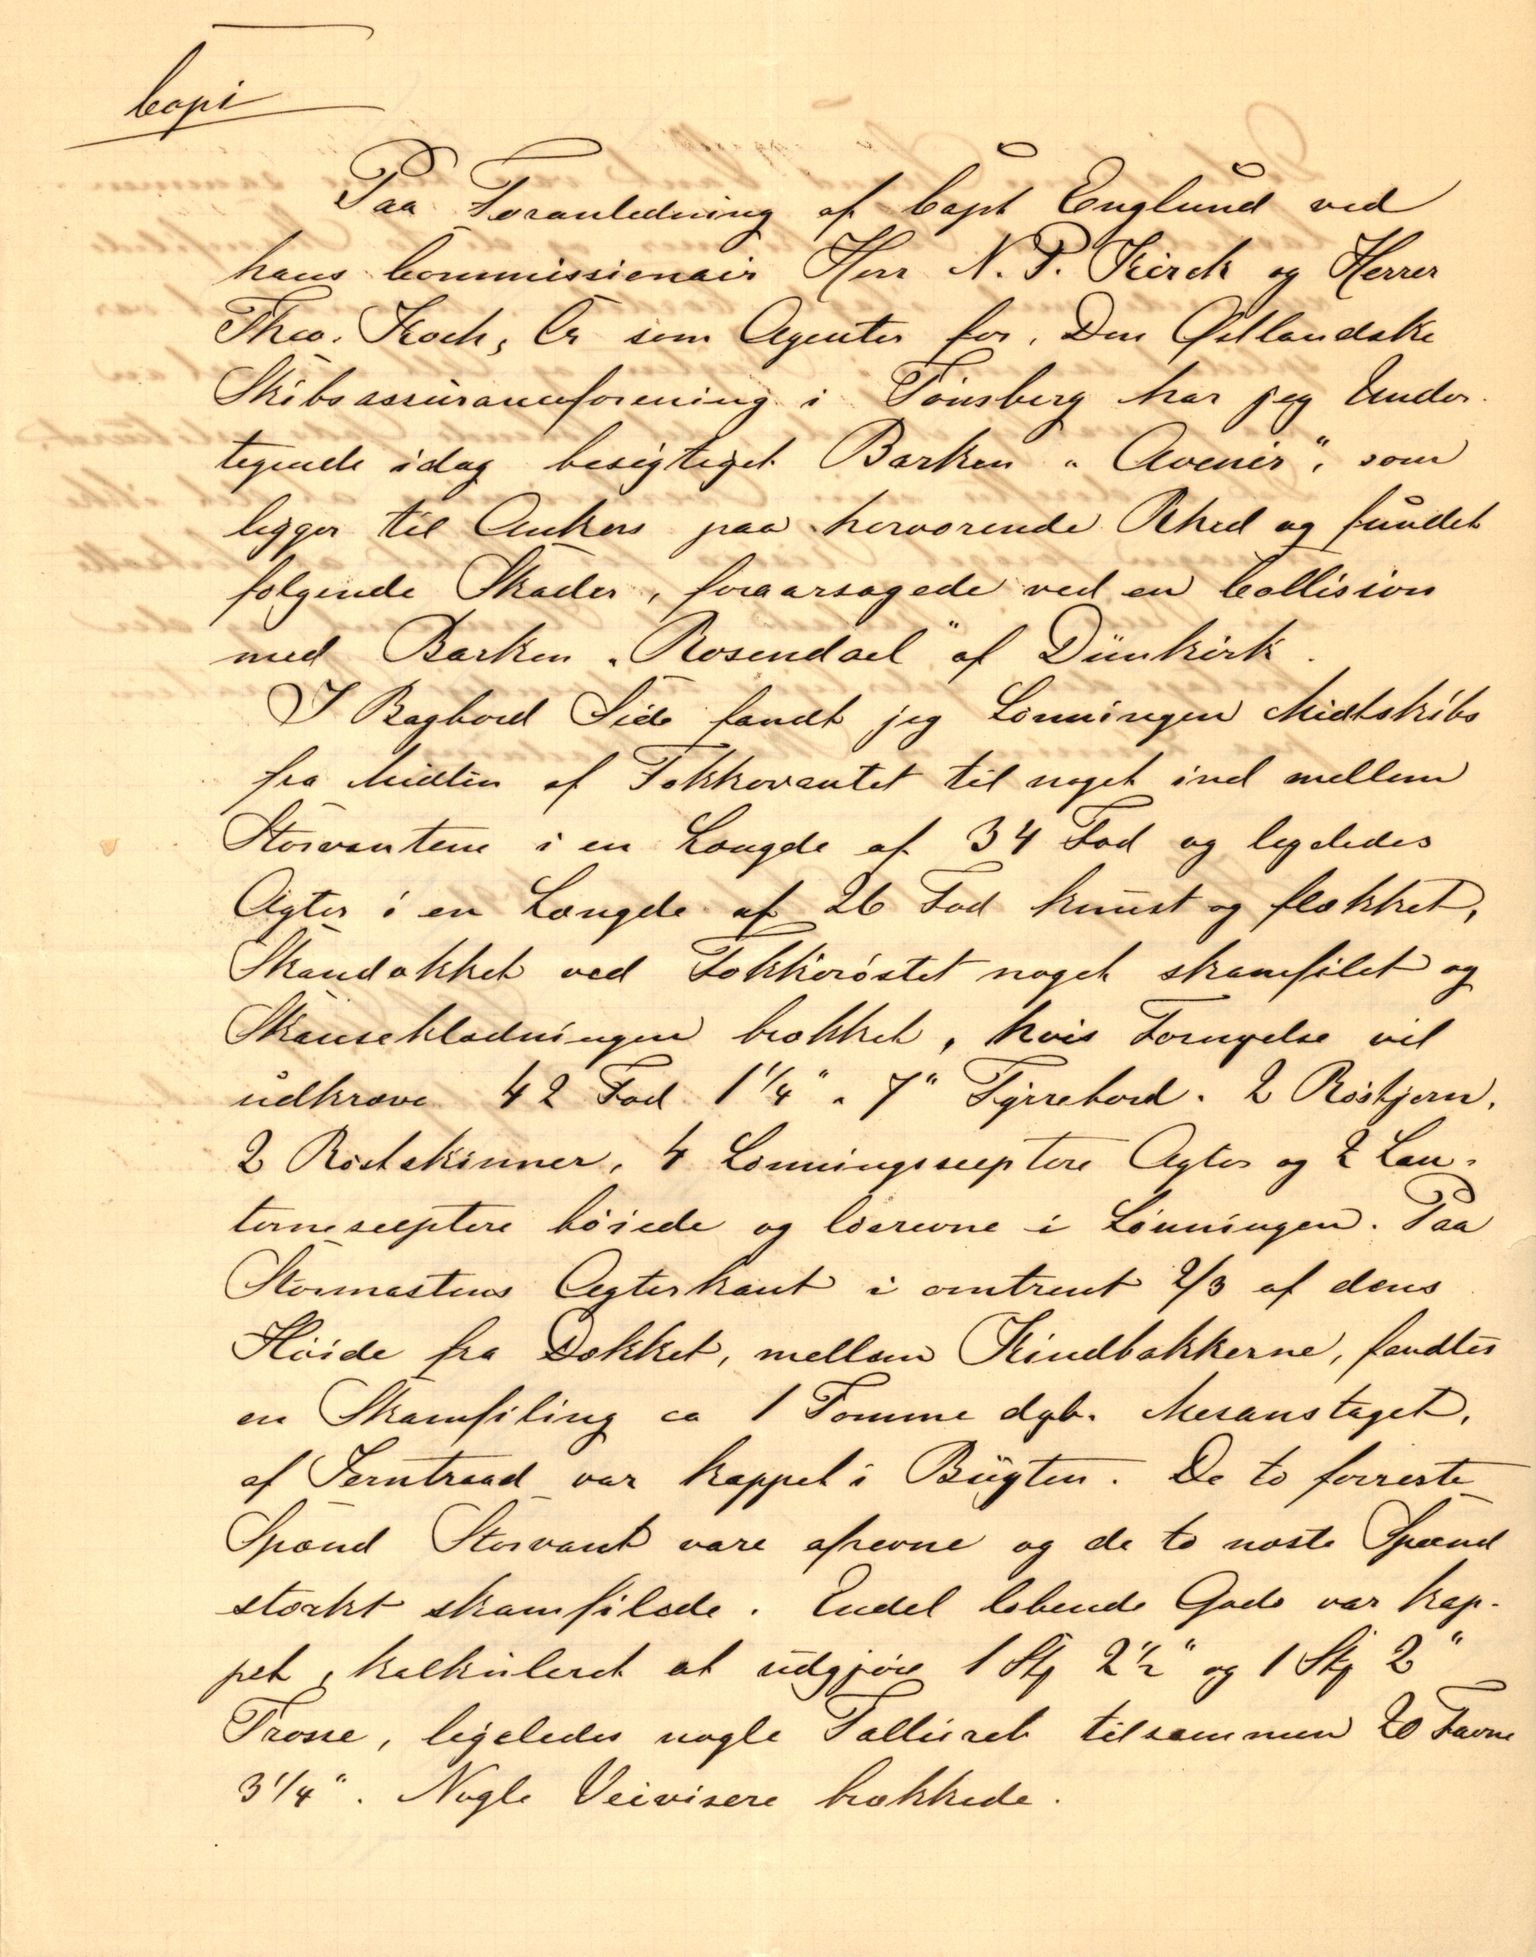 Copi
Paa Foranledning af Capt Englund ved
hans Commissionair Herr N. P. Kirck og Herrer
Theo. Koch, Cr som Agenter for, Den Østlandske
Skibsassuranceforening i Tønsberg har jeg Under-
tegnede idag besigtiget Barken "Avenir", som
ligger til Ankers paa herværende Rhed og fundet
følgende Skader, foraarsagede ved en Collision
med Barken "Rosendael" af Dünkirk.
I Bagbord Side fandt jeg Lønningen Midtskibs
fra Midten af Fokkevantet til noget ind mellem
Storvantene i en Længde af 34 Fod og ligeledes
Agter i en Længde af 26 Fod knust og flækket,
Skandækket ved Fokkerøstet noget skamfilet og
Skanseklædningen brækket, hvis Fornyelse vil
udkræve 42 Fod 1 1/4" " 7" Fyrrebord. 2 Røstjern,
2 Røstskinner, 4 Lønningssceptere Agter og 2 Lan-
ternesceptere bøiede og løsrevne i Lønningen. Paa
Stormastens Agterkant i omtrent 2/3 af dens
Høide fra Dækket, mellem Kindbakkerne, fandtes
en Skamfiling ca 1 Tomme dyb. Mesanstaget,
af Jerntraad var kappet i Bugten. De to forreste
Spænd Storvant vare afrevne og de to næste Spænd
stærkt skamfilede. Endel løbende Gods var kap-
pet, kalkuleret at udgjøre 1 Stg 2 1/2" og 1 Stg 2"
Trosse, ligeledes nogle Talliereb tilsammen 20 Favne
3 1/4". Nogle Veivisere brækkede.